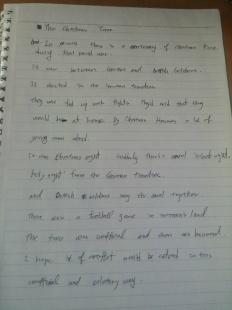 The Christmas Truce
In general there is a centenary of Christmas truce
during first world war.
It was between German and British soldiers.
It started in the German trenches
They are fed up with fights and that they
would be at home by Christmas However a lot of
young men died.
In the Christmas night suddenly there's sound 'silent night,
holy night' from the German trenches.
and British soldiers sang the song together.
There was a football game in no man's land
The truce was unofficial and
I hope of conflict would be in this
unofficial and way.